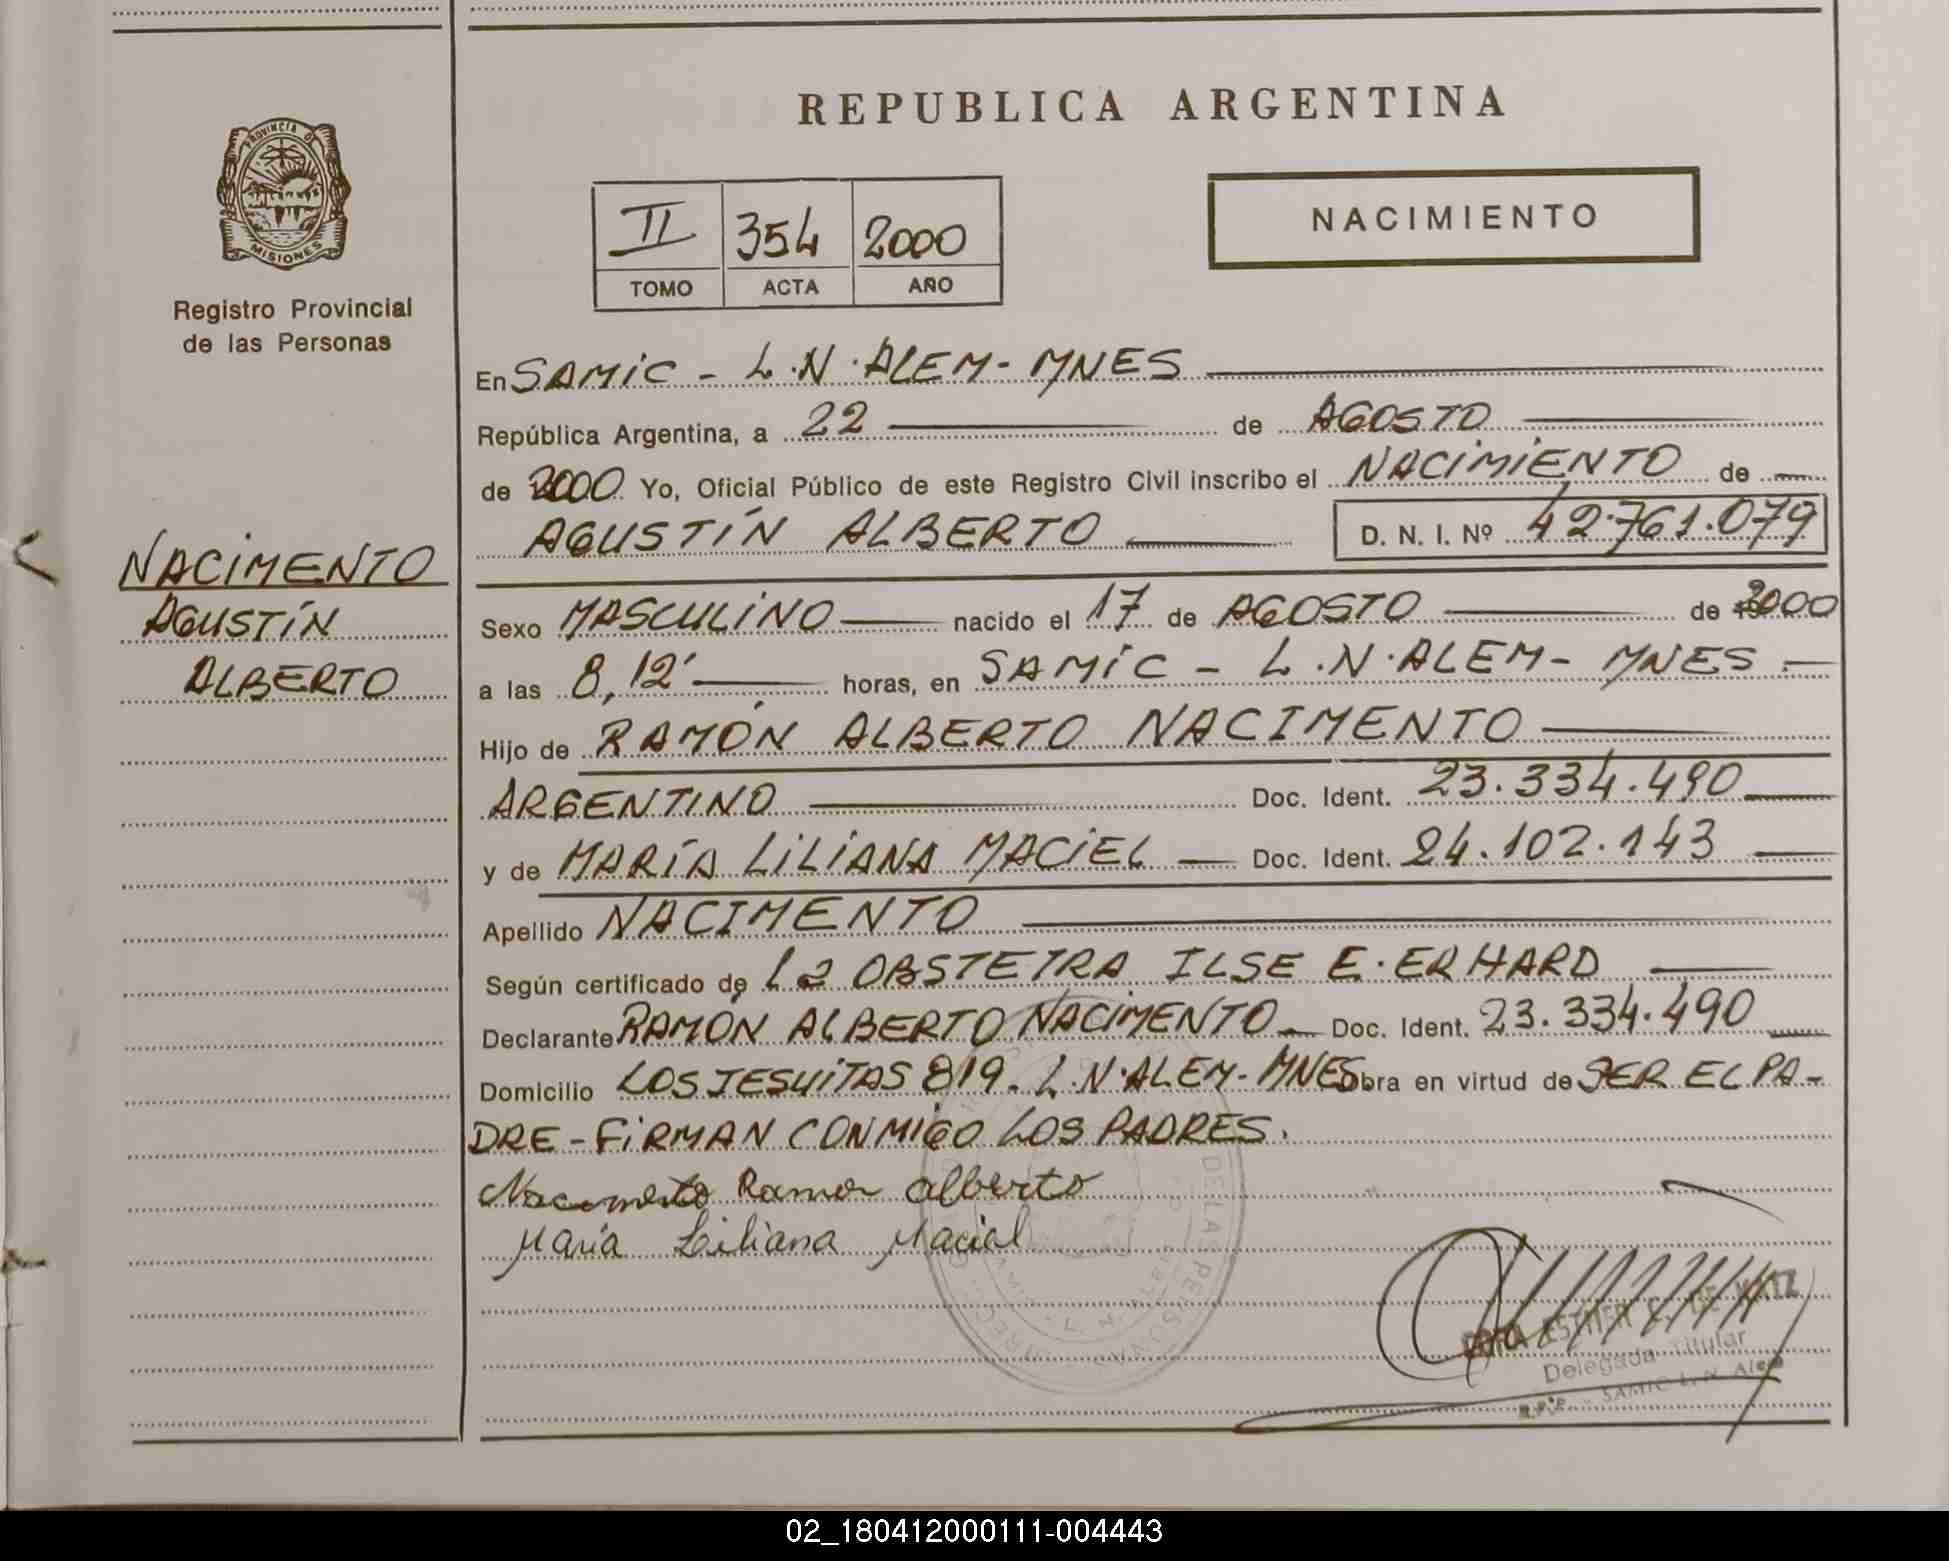 REPUBLICA ARGENTINA
PROVINCIA DE
MISIONES
Registro Provincial
de las Personas
II 354 2000
TOMO ACTA AÑO
NACIMIENTO
En SAMIC - L.N. ALEM - MNES
República Argentina, a 22 de AGOSTO
de 2000 Yo, Oficial Público de este Registro Civil inscribo el NACIMIENTO de
AGUSTÍN ALBERTO D. N. I. Nº 42.761.079
NACIMENTO
AGUSTÍN
ALBERTO
Sexo MASCULINO nacido el 17 de AGOSTO de 2000
a las 8,12' horas, en SAMIC - L.N. ALEM - MNES.
Hijo de RAMÓN ALBERTO NACIMENTO
ARGENTINO Doc. Ident. 23.334.490
y de MARÍA LILIANA MACIEL Doc. Ident. 24.102.143
Apellido NACIMENTO
Según certificado de La OBSTETRA ILSE E. ERHARD
Declarante RAMÓN ALBERTO NACIMENTO Doc. Ident. 23.334.490
Domicilio LOS JESUITAS 819. L.N. ALEM - MNES obra en virtud de SER EL PA-
DRE - FIRMAN CONMIGO LOS PADRES.
Nacimento Ramon alberto
Maria Liliana Maciel
ESTHER
Delegada Titular
SAMIC L. N. Alem
02_180412000111-004443